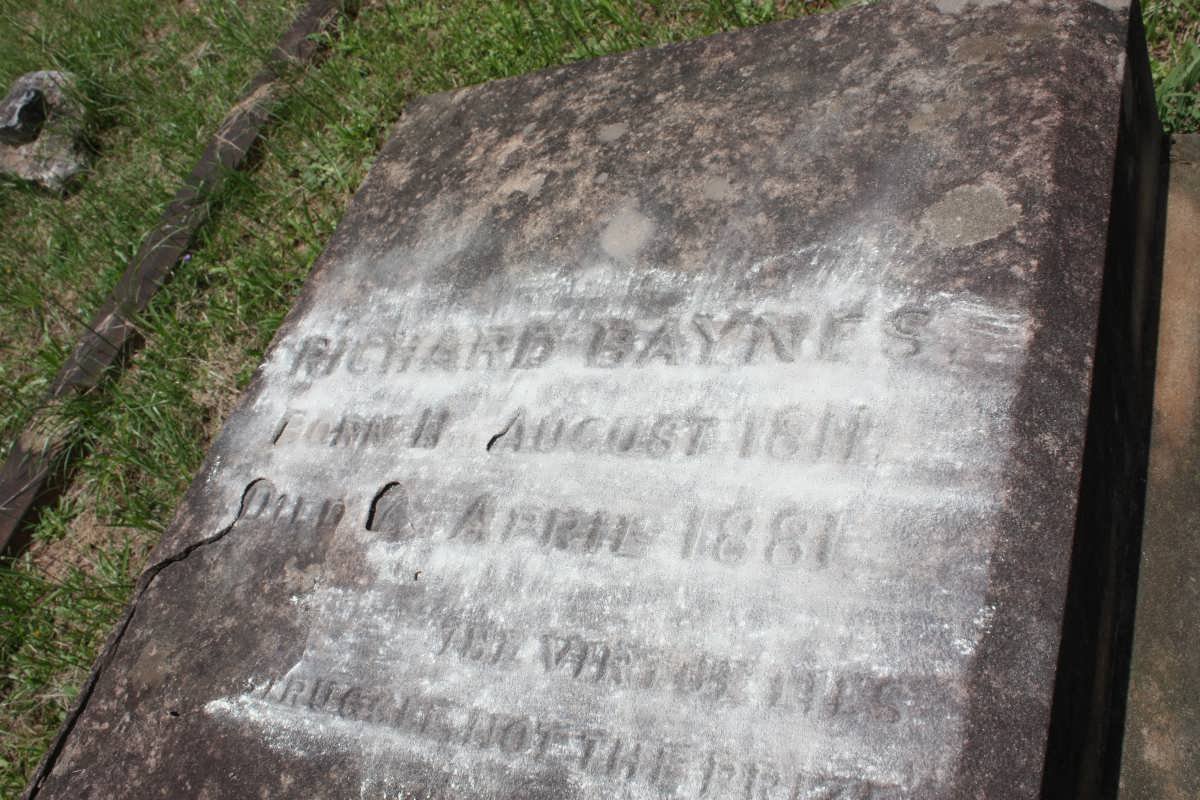 RICHARD BAYNES.
BORN 11 AUGUST 1811.
DIED 6 APRIL 1881
THE VIRTUE LIES
STRUGGLE NOT THE PRIZE